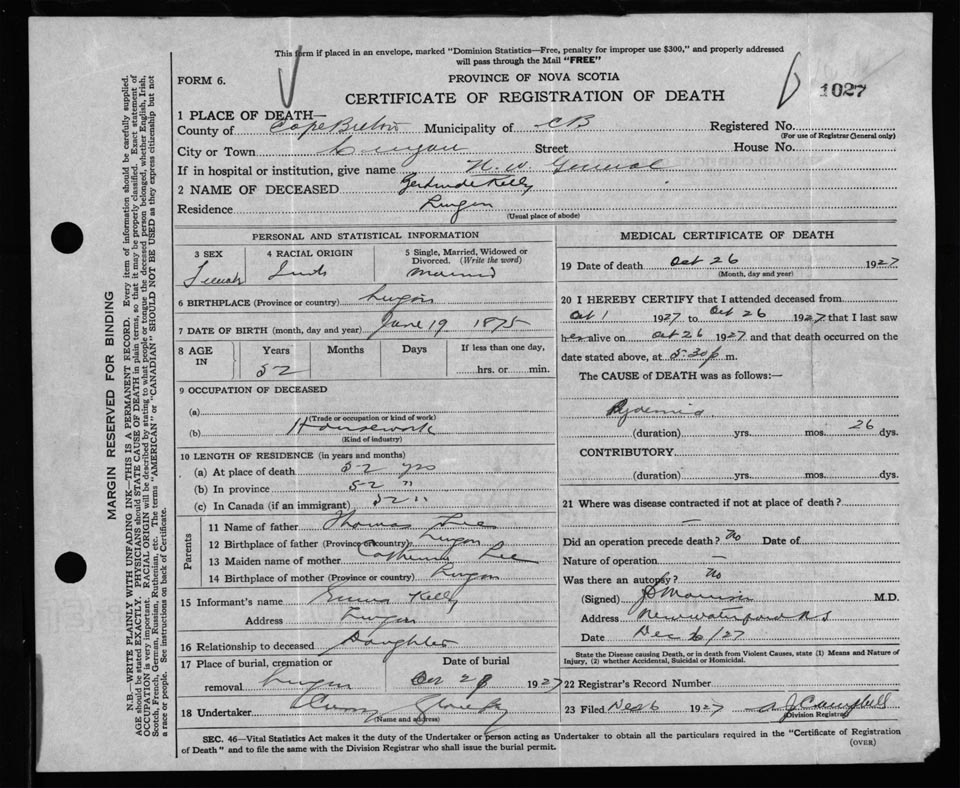 This form if placed in an envelope, marked "Dominion Statistics—Free, penalty for improper use $300," and properly addressed
will pass through the Mail "FREE"
FORM 6.
PROVINCE OF NOVA SCOTIA
1027
CERTIFICATE OF REGISTRATION OF DEATH
1 PLACE OF DEATH—
County of Cape Breton Municipality of CB Registered No.
(For use of Registrar General only)
City or Town Lingan Street House No.
If in hospital or institution, give name N. W. General
2 NAME OF DECEASED Gertrude Kelly
Residence Lingan
(Usual place of abode)
PERSONAL AND STATISTICAL INFORMATION
3 SEX 4 RACIAL ORIGIN 5 Single, Married, Widowed or Divorced. (Write the word)
Female Irish Married
6 BIRTHPLACE (Province or country) Lingan
7 DATE OF BIRTH (month, day and year) June 19 1875
8 AGE IN Years Months Days If less than one day,
52 hrs. or min.
9 OCCUPATION OF DECEASED
(a)
(Trade or occupation or kind of work)
(b) Housework
(Kind of industry)
10 LENGTH OF RESIDENCE (in years and months)
(a) At place of death 52 yrs
(b) In province 52 "
(c) In Canada (if an immigrant) 52 "
Parents
11 Name of father Thomas
12 Birthplace of father (Province or country) Lingan
13 Maiden name of mother Catherine Lee
14 Birthplace of mother (Province or country) Lingan
15 Informant's name Emma Kelly
Address Lingan
16 Relationship to deceased Daughter
17 Place of burial, cremation or Date of burial
removal Lingan 28 1927
18 Undertaker
(Name and address)
MEDICAL CERTIFICATE OF DEATH
19 Date of death Oct 26 1927
(Month, day and year)
20 I HEREBY CERTIFY that I attended deceased from
Oct 1 1927 to Oct 26 1927 that I last saw
her alive on Oct 26 1927 and that death occurred on the
date stated above, at 5:30 p m.
The CAUSE of DEATH was as follows:—
Pyaemia
(duration) yrs. mos. 26 dys.
CONTRIBUTORY
(duration) yrs. mos. dys.
21 Where was disease contracted if not at place of death?
—
Did an operation precede death? No Date of
Nature of operation —
Was there an autopsy? No
(Signed) M.D.
Address New Waterford NS
Date Dec 26/27
State the Disease causing Death, or in death from Violent Causes, state (1) Means and Nature of
Injury, (2) whether Accidental, Suicidal or Homicidal.
22 Registrar's Record Number
23 Filed Dec 6 1927 A J Campbell
Division Registrar
SEC. 46—Vital Statistics Act makes it the duty of the Undertaker or person acting as Undertaker to obtain all the particulars required in the "Certificate of Registration
of Death" and to file the same with the Division Registrar who shall issue the burial permit.
(OVER)
MARGIN RESERVED FOR BINDING
N.B.—WRITE PLAINLY WITH UNFADING INK—THIS IS A PERMANENT RECORD. Every item of information should be carefully supplied.
AGE should be stated EXACTLY. PHYSICIANS should STATE CAUSE OF DEATH in plain terms, so that it may be properly classified. Exact statement of
OCCUPATION is very important. RACIAL ORIGIN will be described by stating to what people or tongue the deceased person belonged, whether English, Irish,
Scotch, French, German, Russian, Ruthenian, etc. The terms "AMERICAN" or "CANADIAN" SHOULD NOT BE USED as they express citizenship but not
a race or people. See instructions on back of Certificate.